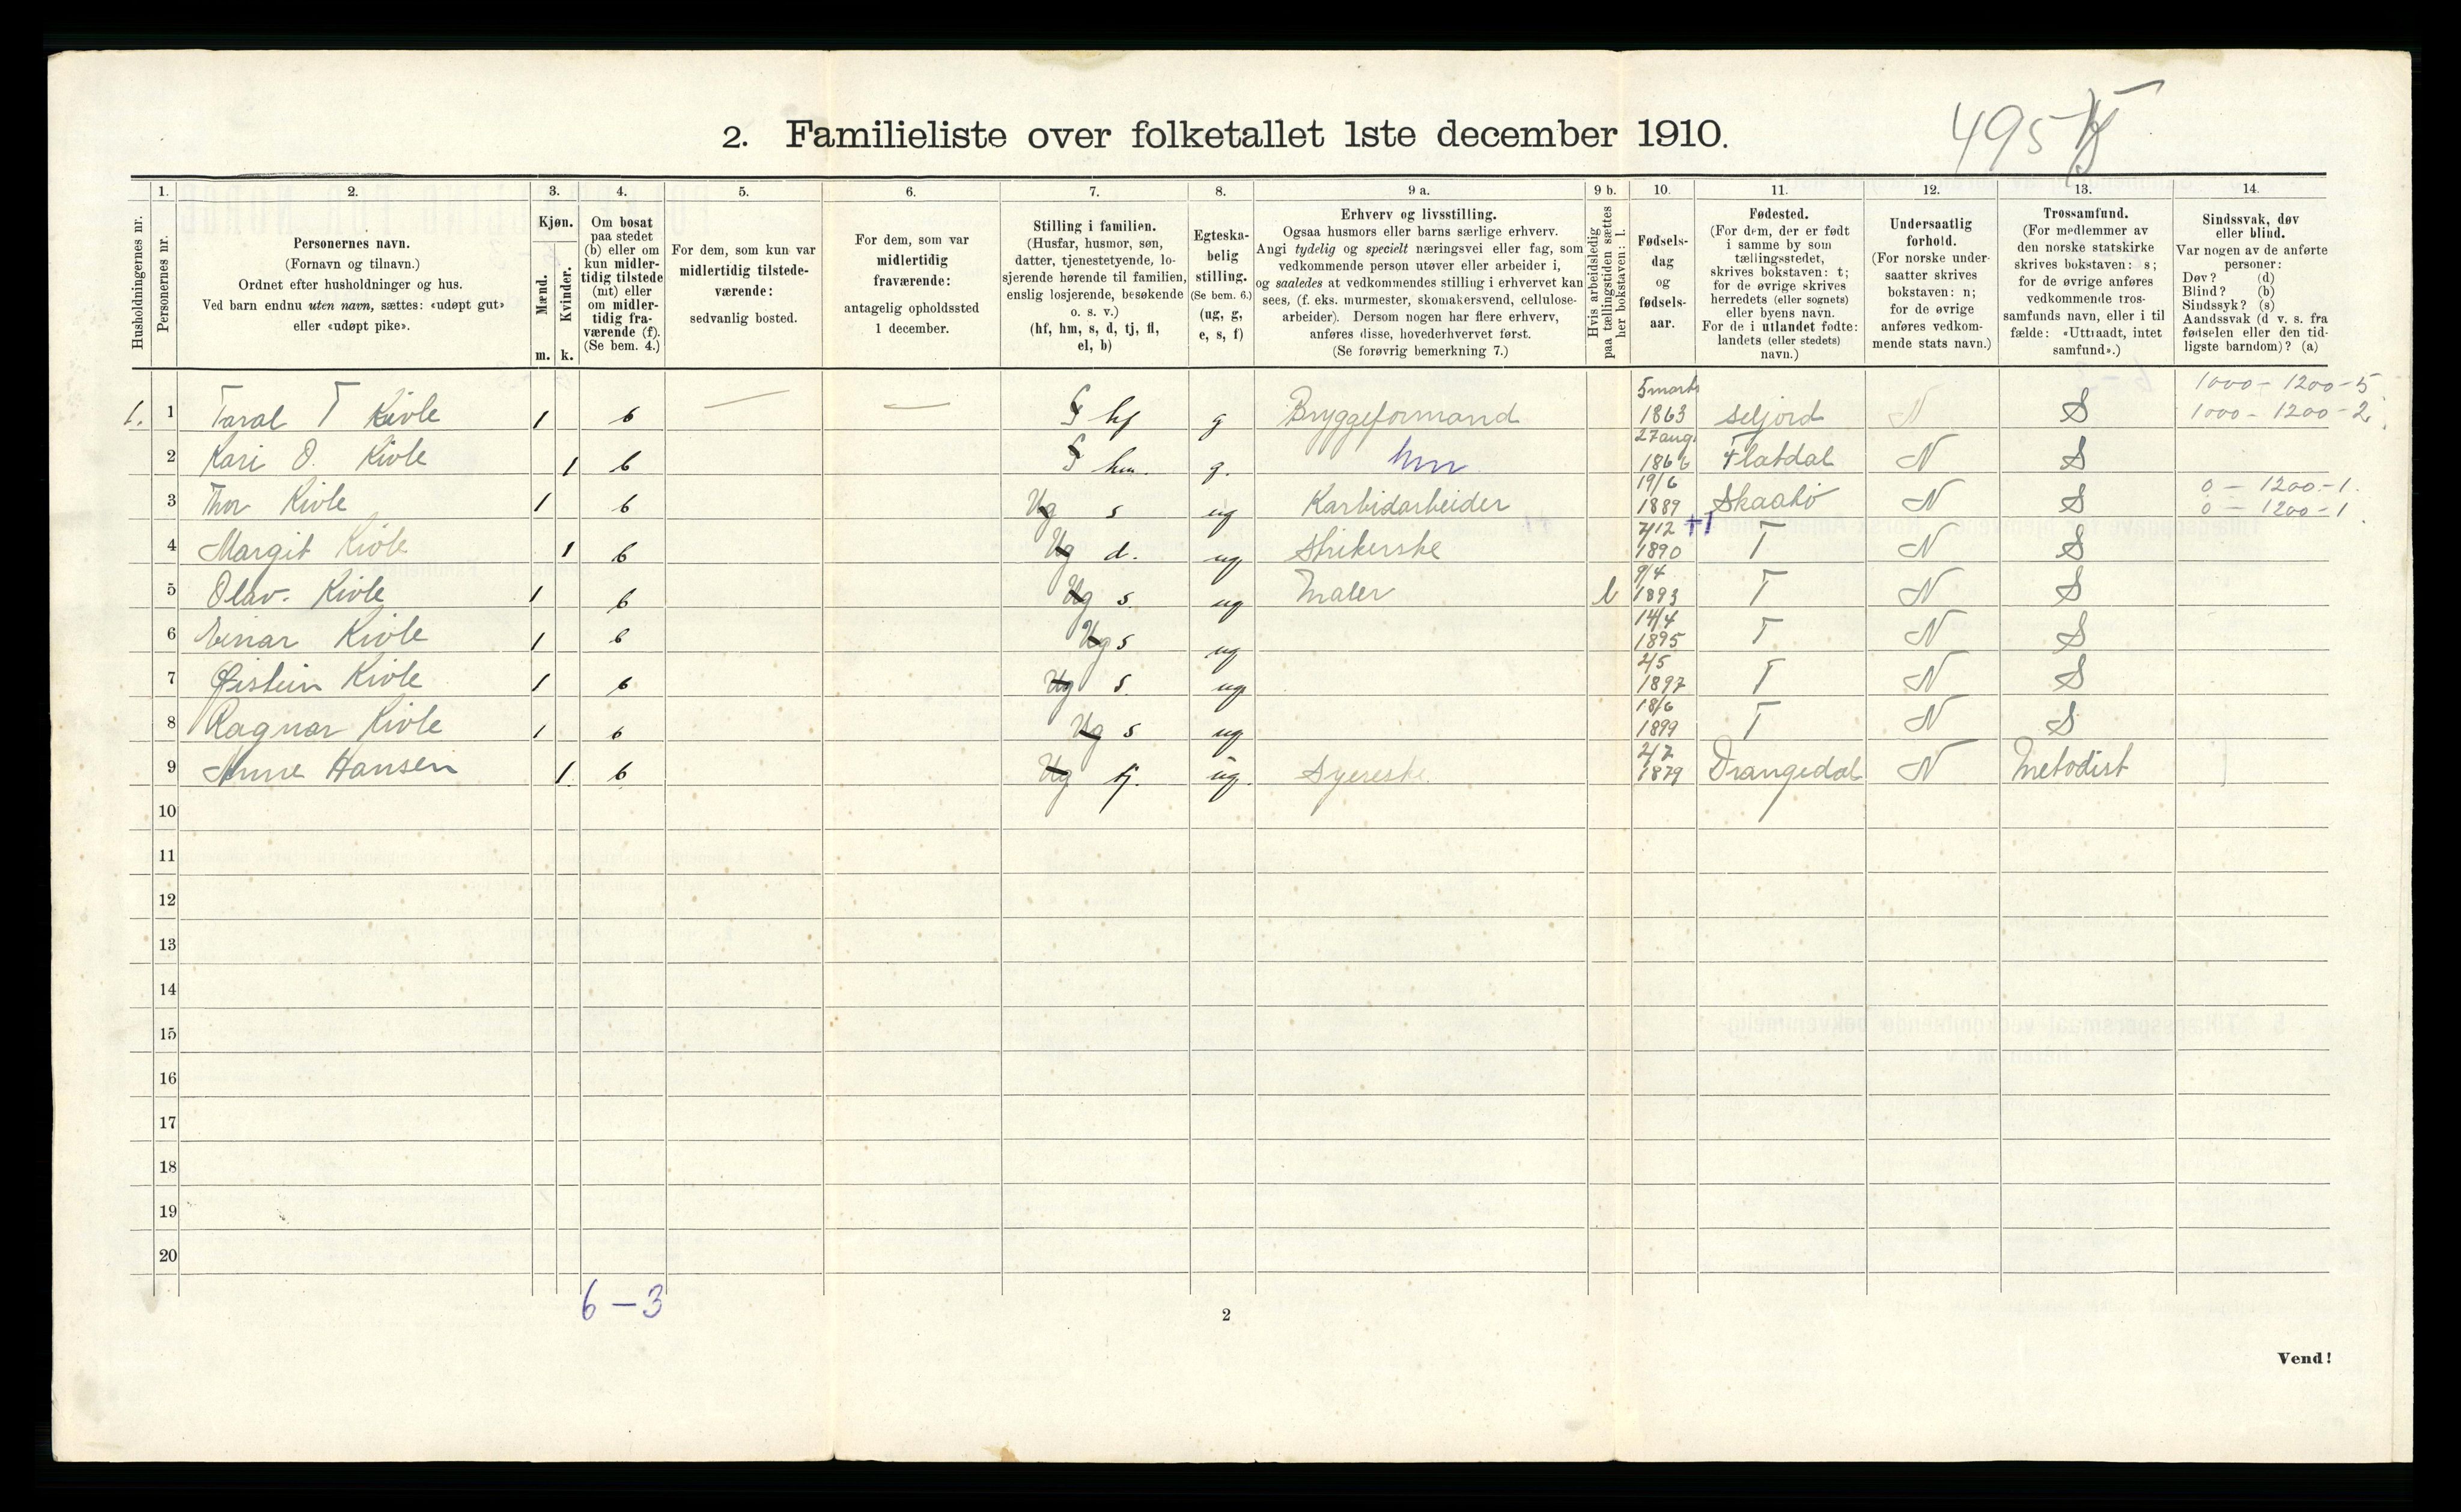 495
2. Familieliste over folketallet 1ste december 1910.
Husholdningernes nr.
1. Personernes nr.
2. Personernes navn. (Fornavn og tilnavn.) Ordnet efter husholdninger og hus. Ved barn endnu uten navn, sættes: «udøpt gut» eller «udøpt pike».
3. Kjøn. Mænd. m. Kvinder. k.
4. Om bosat paa stedet (b) eller om kun midlertidig tilstede (mt) eller om midlertidig fraværende (f). (Se bem. 4.)
5. For dem, som kun var midlertidig tilstedeværende: sedvanlig bosted.
6. For dem, som var midlertidig fraværende: antagelig opholdssted 1 december.
7. Stilling i familien. (Husfar, husmor, søn, datter, tjenestetyende, losjerende hørende til familien, enslig losjerende, besøkende o. s. v.) (hf, hm, s, d, tj, fl, el, b)
8. Egteskabelig stilling. (Se bem. 6.) (ug, g, e, s, f)
9 a. Erhverv og livsstilling. Ogsaa husmors eller barns særlige erhverv. Angi tydelig og specielt næringsvei eller fag, som vedkommende person utøver eller arbeider i, og saaledes at vedkommendes stilling i erhvervet kan sees, (f. eks. murmester, skomakersvend, cellulosearbeider). Dersom nogen har flere erhverv, anføres disse, hovederhvervet først. (Se forøvrig bemerkning 7.)
9 b. Hvis arbeidsledig paa tællingstiden sættes her bokstaven: l.
10. Fødselsdag og fødselsaar.
11. Fødested. (For dem, der er født i samme by som tællingsstedet, skrives bokstaven: t; for de øvrige skrives herredets (eller sognets) eller byens navn. For de i utlandet fødte: landets (eller stedets) navn.)
12. Undersaatlig forhold. (For norske undersaatter skrives bokstaven: n; for de øvrige anføres vedkommende stats navn.)
13. Trossamfund. (For medlemmer av den norske statskirke skrives bokstaven: s; for de øvrige anføres vedkommende trossamfunds navn, eller i tilfælde: «Uttraadt, intet samfund».)
14. Sindssvak, døv eller blind. Var nogen av de anførte personer: Døv? (d) Blind? (b) Sindssyk? (s) Aandssvak (d v. s. fra fødselen eller den tidligste barndom)? (a)
1. 1 Taral T Kivle 1 b — — hf g Bryggeformand 5 marts 1863 Seljord N S 1000 - 1200 - 5 1000 - 1200 - 2
2 Kari O. Kivle 1 b hm. g. hm 27 aug 1866 Flatdal N S
3 Thor Kivle 1 b Ug s ug Karbidarbeider 19/6 1889 Skaabø N S 0 - 1200 - 1. 0 - 1200 - 1
4 Margit Kivle 1 b Ug d. ug Strikerske 7/12 1890 +1 T N S
5 Olav. Kivle 1 b Ug s. ug Maler l 9/4 1893 T N S
6 Einar Kivle 1 b Ug s ug 14/4 1895 T N S
7 Øistein Kivle 1 b Ug s. ug 2/5 1897 T N S
8 Ragnar Kivle 1 b Ug s ug 18/6 1899 T N S
9 Anne Hansen 1 b Ug tj. ug. Syerske 2/7 1879 Drangedal N Metodist
10
11
12
13
14
15
16
17
18
19
20
6 - 3
2
Vend!